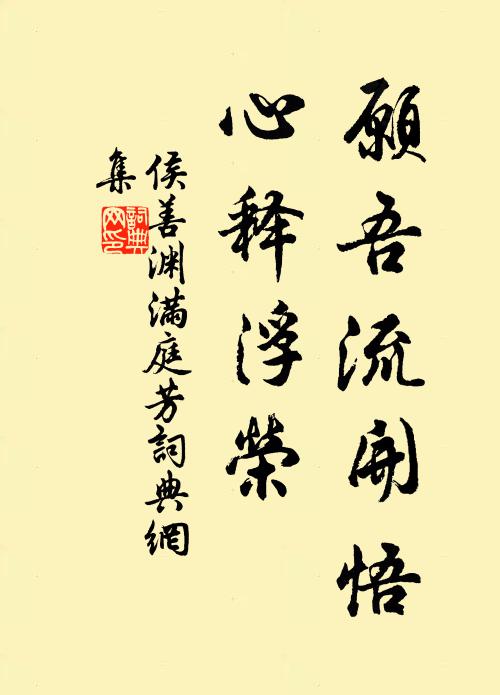 願吾流開悟
心释浮榮
侯善渊滿庭芳詞典網
集
詞典網印